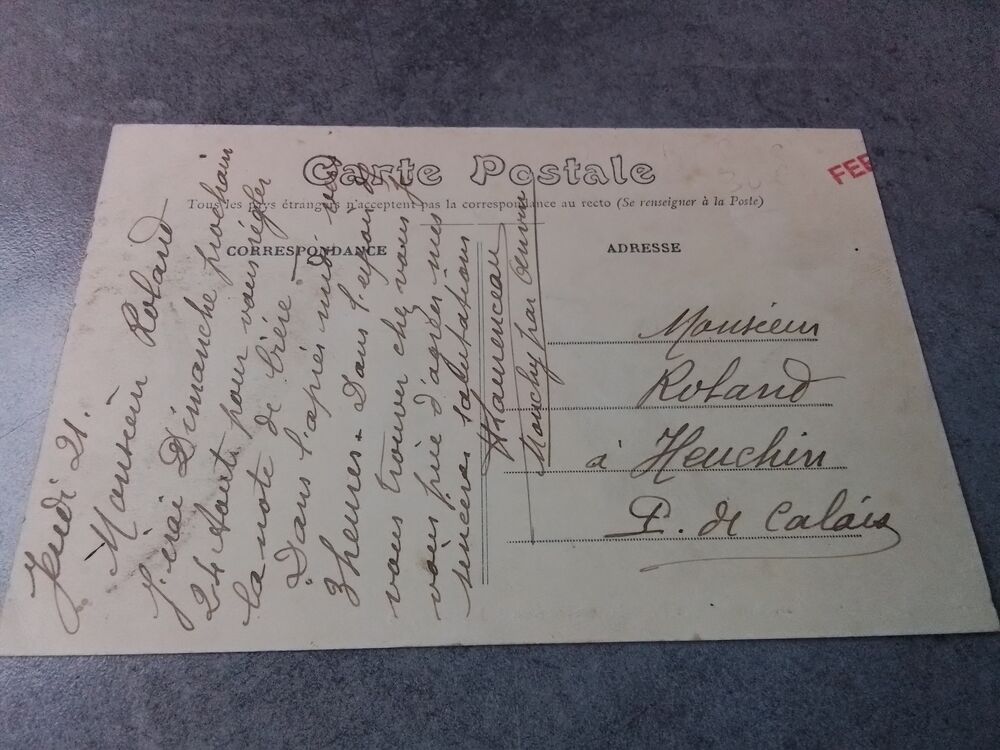 Carte Postale
Tous les pays étrangers n'acceptent pas la correspondance au recto (Se renseigner à la Poste)
CORRESPONDANCE
ADRESSE
FEE
Jeudi 21.
Monsieur Roland
J'irai Dimanche prochain
24 Août pour vous régler
la note de bière.
Dans l'après midi vers
3 heures. Dans l'espoir de
vous trouver chez vous, je
vous prie d'agréer mes
sincères salutations
Monchy par
Monsieur
Roland
à Heuchin
P. de Calais